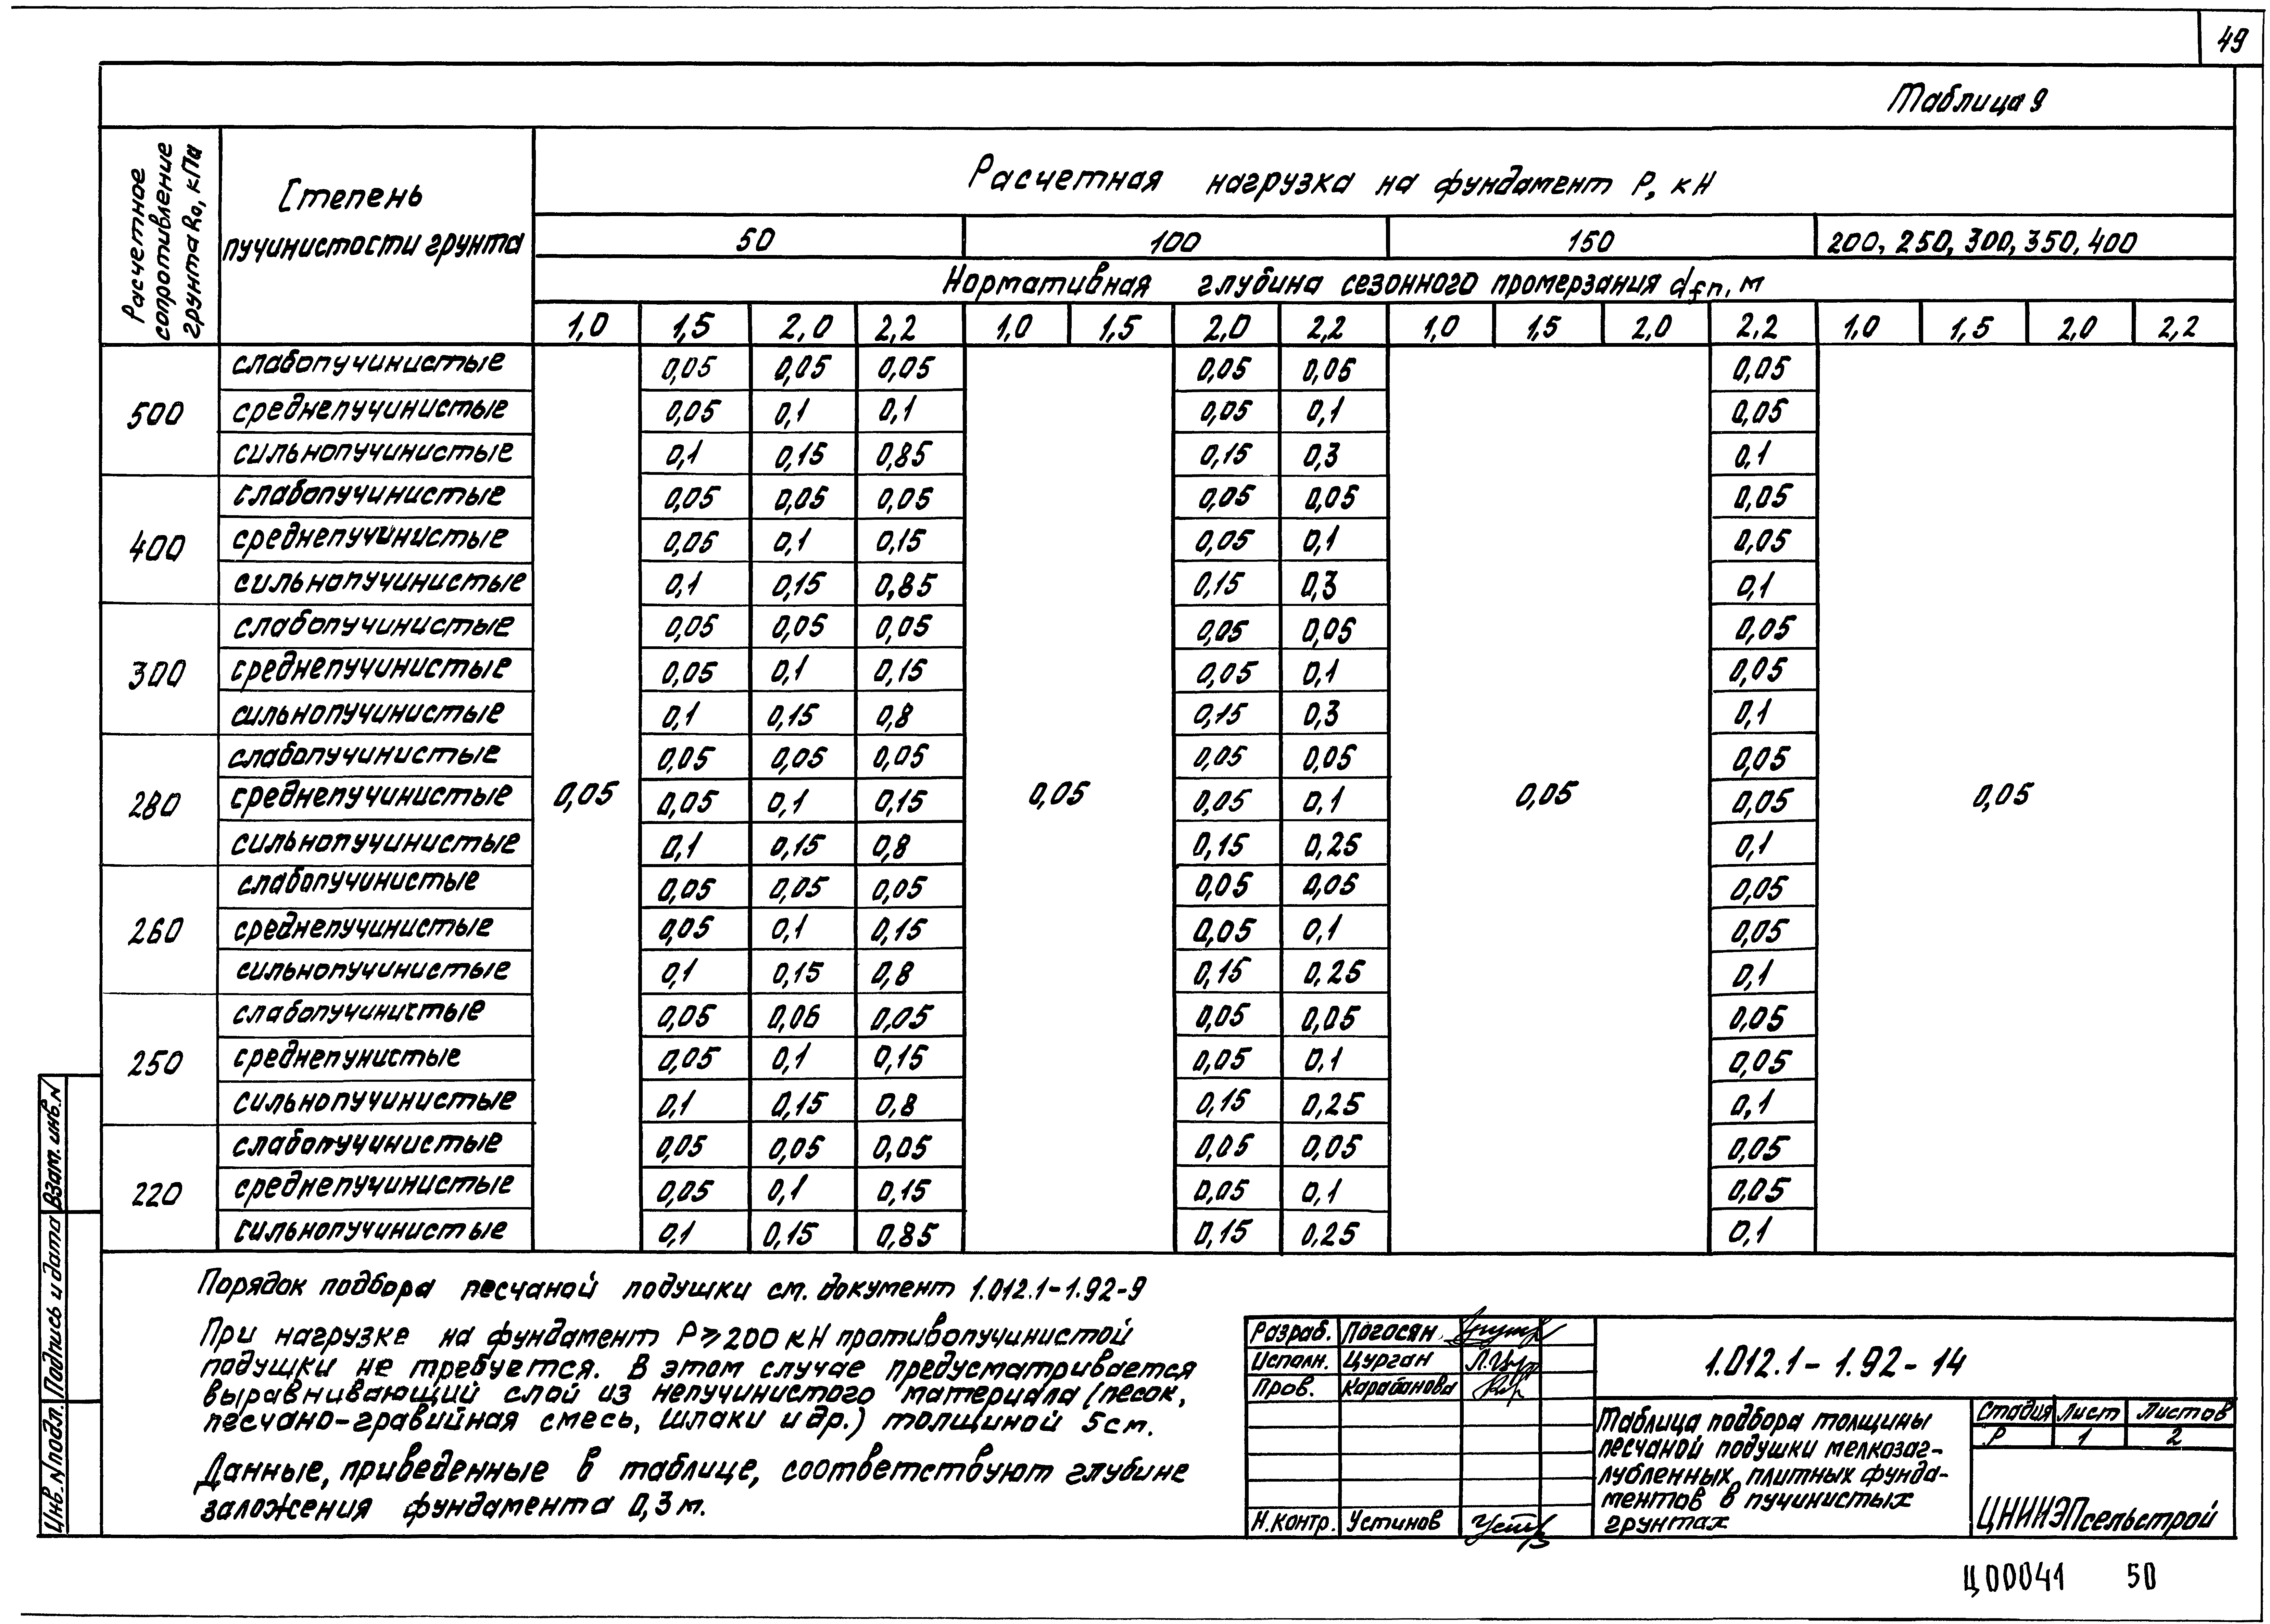 49
Таблица 9
Расчетное сопротивление грунта Ro, кПа
Степень пучинистости грунта
Расчетная нагрузка на фундамент Р, кН
50 100 150 200, 250, 300, 350, 400
Нормативная глубина сезонного промерзания dfn, м
1,0 1,5 2,0 2,2 1,0 1,5 2,0 2,2 1,0 1,5 2,0 2,2 1,0 1,5 2,0 2,2
500
слабопучинистые 0,05 0,05 0,05 0,05 0,05 0,05
среднепучинистые 0,05 0,1 0,1 0,05 0,1 0,05
сильнопучинистые 0,1 0,15 0,85 0,15 0,3 0,1
400
слабопучинистые 0,05 0,05 0,05 0,05 0,05 0,05
среднепучинистые 0,05 0,1 0,15 0,05 0,1 0,05
сильнопучинистые 0,1 0,15 0,85 0,15 0,3 0,1
300
слабопучинистые 0,05 0,05 0,05 0,05 0,05 0,05
среднепучинистые 0,05 0,1 0,15 0,05 0,1 0,05
сильнопучинистые 0,1 0,15 0,8 0,15 0,3 0,1
280
слабопучинистые 0,05 0,05 0,05 0,05 0,05 0,05
среднепучинистые 0,05 0,05 0,1 0,15 0,05 0,05 0,1 0,05 0,05 0,05
сильнопучинистые 0,1 0,15 0,8 0,15 0,25 0,1
260
слабопучинистые 0,05 0,05 0,05 0,05 0,05 0,05
среднепучинистые 0,05 0,1 0,15 0,05 0,1 0,05
сильнопучинистые 0,1 0,15 0,8 0,15 0,25 0,1
250
слабопучинистые 0,05 0,06 0,05 0,05 0,05 0,05
среднепунистые 0,05 0,1 0,15 0,05 0,1 0,05
сильнопучинистые 0,1 0,15 0,8 0,15 0,25 0,1
220
слабопучинистые 0,05 0,05 0,05 0,05 0,05 0,05
среднепучинистые 0,05 0,1 0,15 0,05 0,1 0,05
сильнопучинистые 0,1 0,15 0,85 0,15 0,25 0,1
Порядок подбора песчаной подушки см. документ 1.012.1-1.92-9
При нагрузке на фундамент Р⩾200 кН противопучинистой
подушки не требуется. В этом случае предусматривается
выравнивающий слой из непучинистого материала (песок,
песчано-гравийная смесь, шлаки и др.) толщиной 5см.
Данные, приведенные в таблице, соответствуют глубине
заложения фундамента 0,3м.
Инв. N подл. Подпись и дата Взам. инв. N
Разраб. Погосян
Исполн. Цурган
Пров. Карабанова
Н.контр. Устинов
1.012.1-1.92-14
Таблица подбора толщины
песчаной подушки мелкозаг-
лубленных плитных фунда-
ментов в пучинистых
грунтах
Стадия Лист Листов
Р 1 2
ЦНИИЭПсельстрой
Ц00041 50